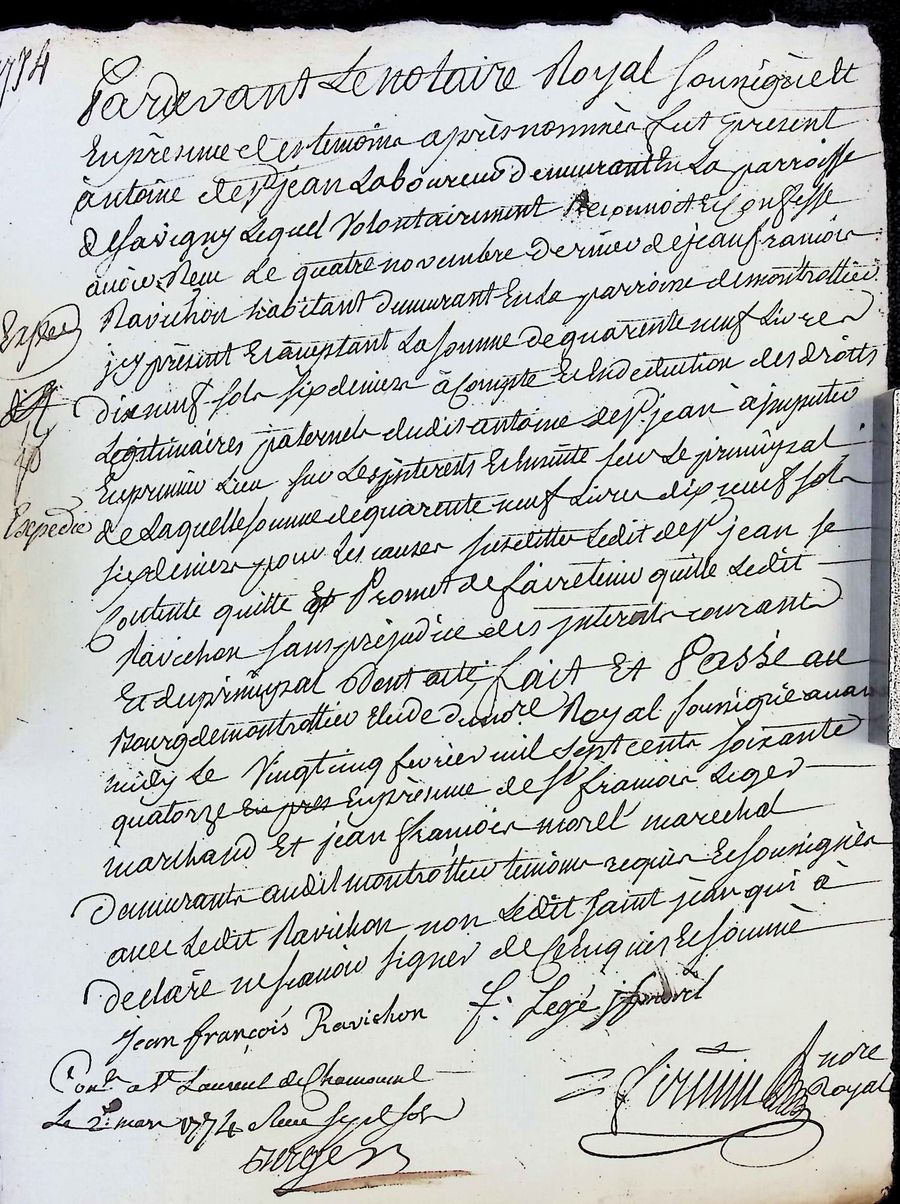 1774
Pardevant Le notaire Royal Sousigné et
En présence des temoins après nommés fut present
antoine de St jean Laboureur Demeurant En La parroisse
de Savigny Lequel Volontairement Reconnoit et Confesse
avoir Reçu Le quatre novembre dernier de jean francois
Ravichon habitant demeurant En La parroisse de montrottier
jcy présent Et acceptant La somme de quarente neuf Livres
dix neuf sols six deniers à Compte Et En deduction des droits
Legitimaires paternels dudit antoine de St jean à jmputer
En premier Lieu sur Les jnterests Et Ensuitte sur Le principal
de Laquelle somme de quarente neuf Livres dix neuf sols
six deniers pour Les causes susdittes Ledit de St jean se
Contente quitte et Promet de faire tenir quitte Ledit
Ravichon sans préjudice des jnterets courants
Et du principal Dont acte, fait Et Passé au
Bourg de montrottier Etude du nore Royal sousigné avan
midy Le Vingt cinq fevrier mil sept cents soixante
quatorze En pres En présence de Sr francois Leger
marchand Et jean francois morel marechal
Demeurants audit montrottier temoins requis Et sousignés
avec Ledit Ravichon non Ledit saint jean qui à
declaré ne scavoir signer de Ce Enquis Et sommé
Jean françois Ravichon f: Legé jfmorel
Conlé a St Laurent de Chamousset
Le 2 mars 1774 Reçu sept sols
nore
Royal
Exped
Expedié